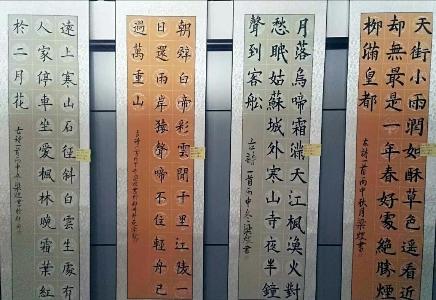 天街小雨潤如酥草色遙看近
却無最是一年春好處絕勝煙
柳滿皇都
古詩一首丙申秋月梁煜書
月落烏啼霜滿天江楓漁火對
愁眠姑蘇城外寒山寺夜半鐘
聲到客船
古詩一首丙申冬梁煜書
朝辭白帝彩雲間千里江陵一
日還兩岸猿聲啼不住輕舟已
過萬重山
古詩一首丙申年梁煜書於
遠上寒山石徑斜白雲生處有
人家停車坐愛楓林晚霜葉紅
於二月花
古詩一首丙申冬梁煜書於